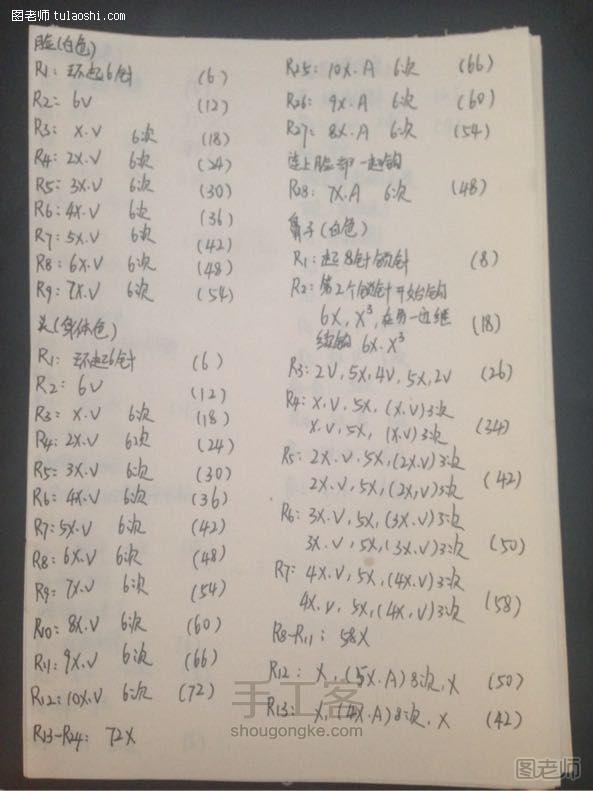 图老师 www.tulaoshi.com
脸(白色)
R1: 环起6针 (6)
R2: 6V (12)
R3: X.V 6次 (18)
R4: 2X.V 6次 (24)
R5: 3X.V 6次 (30)
R6: 4X.V 6次 (36)
R7: 5X.V 6次 (42)
R8: 6X.V 6次 (48)
R9: 7X.V 6次 (54)
头(身体色)
R1: 环起6针 (6)
R2: 6V (12)
R3: X.V 6次 (18)
R4: 2X.V 6次 (24)
R5: 3X.V 6次 (30)
R6: 4X.V 6次 (36)
R7: 5X.V 6次 (42)
R8: 6X.V 6次 (48)
R9: 7X.V 6次 (54)
R10: 8X.V 6次 (60)
R11: 9X.V 6次 (66)
R12: 10X.V 6次 (72)
R13-R24: 72X
R25: 10X.A 6次 (66)
R26: 9X.A 6次 (60)
R27: 8X.A 6次 (54)
连上脸部一起钩
R28: 7X.A 6次 (48)
鼻子(白色)
R1: 起8针锁针 (8)
R2: 第2个锁针开始钩
6X, X³, 在另一边继
续钩 6X.X³ (18)
R3: 2V, 5X, 4V, 5X, 2V (26)
R4: X.V, 5X, (X.V)3次
X.V, 5X, (X.V)3次 (34)
R5: 2X.V, 5X, (2X.V)3次
2X.V, 5X, (2X,V)3次 (42)
R6: 3X.V, 5X, (3X.V)3次
3X.V, 5X, (3X.V)3次 (50)
R7: 4X.V, 5X, (4X.V)3次
4X.V, 5X, (4X.V)3次 (58)
R8-R11: 58X
R12: X, (5X.A)8次, X (50)
R13: X, (4X.A)8次, X (42)
手工客
shougongke.com
图老师